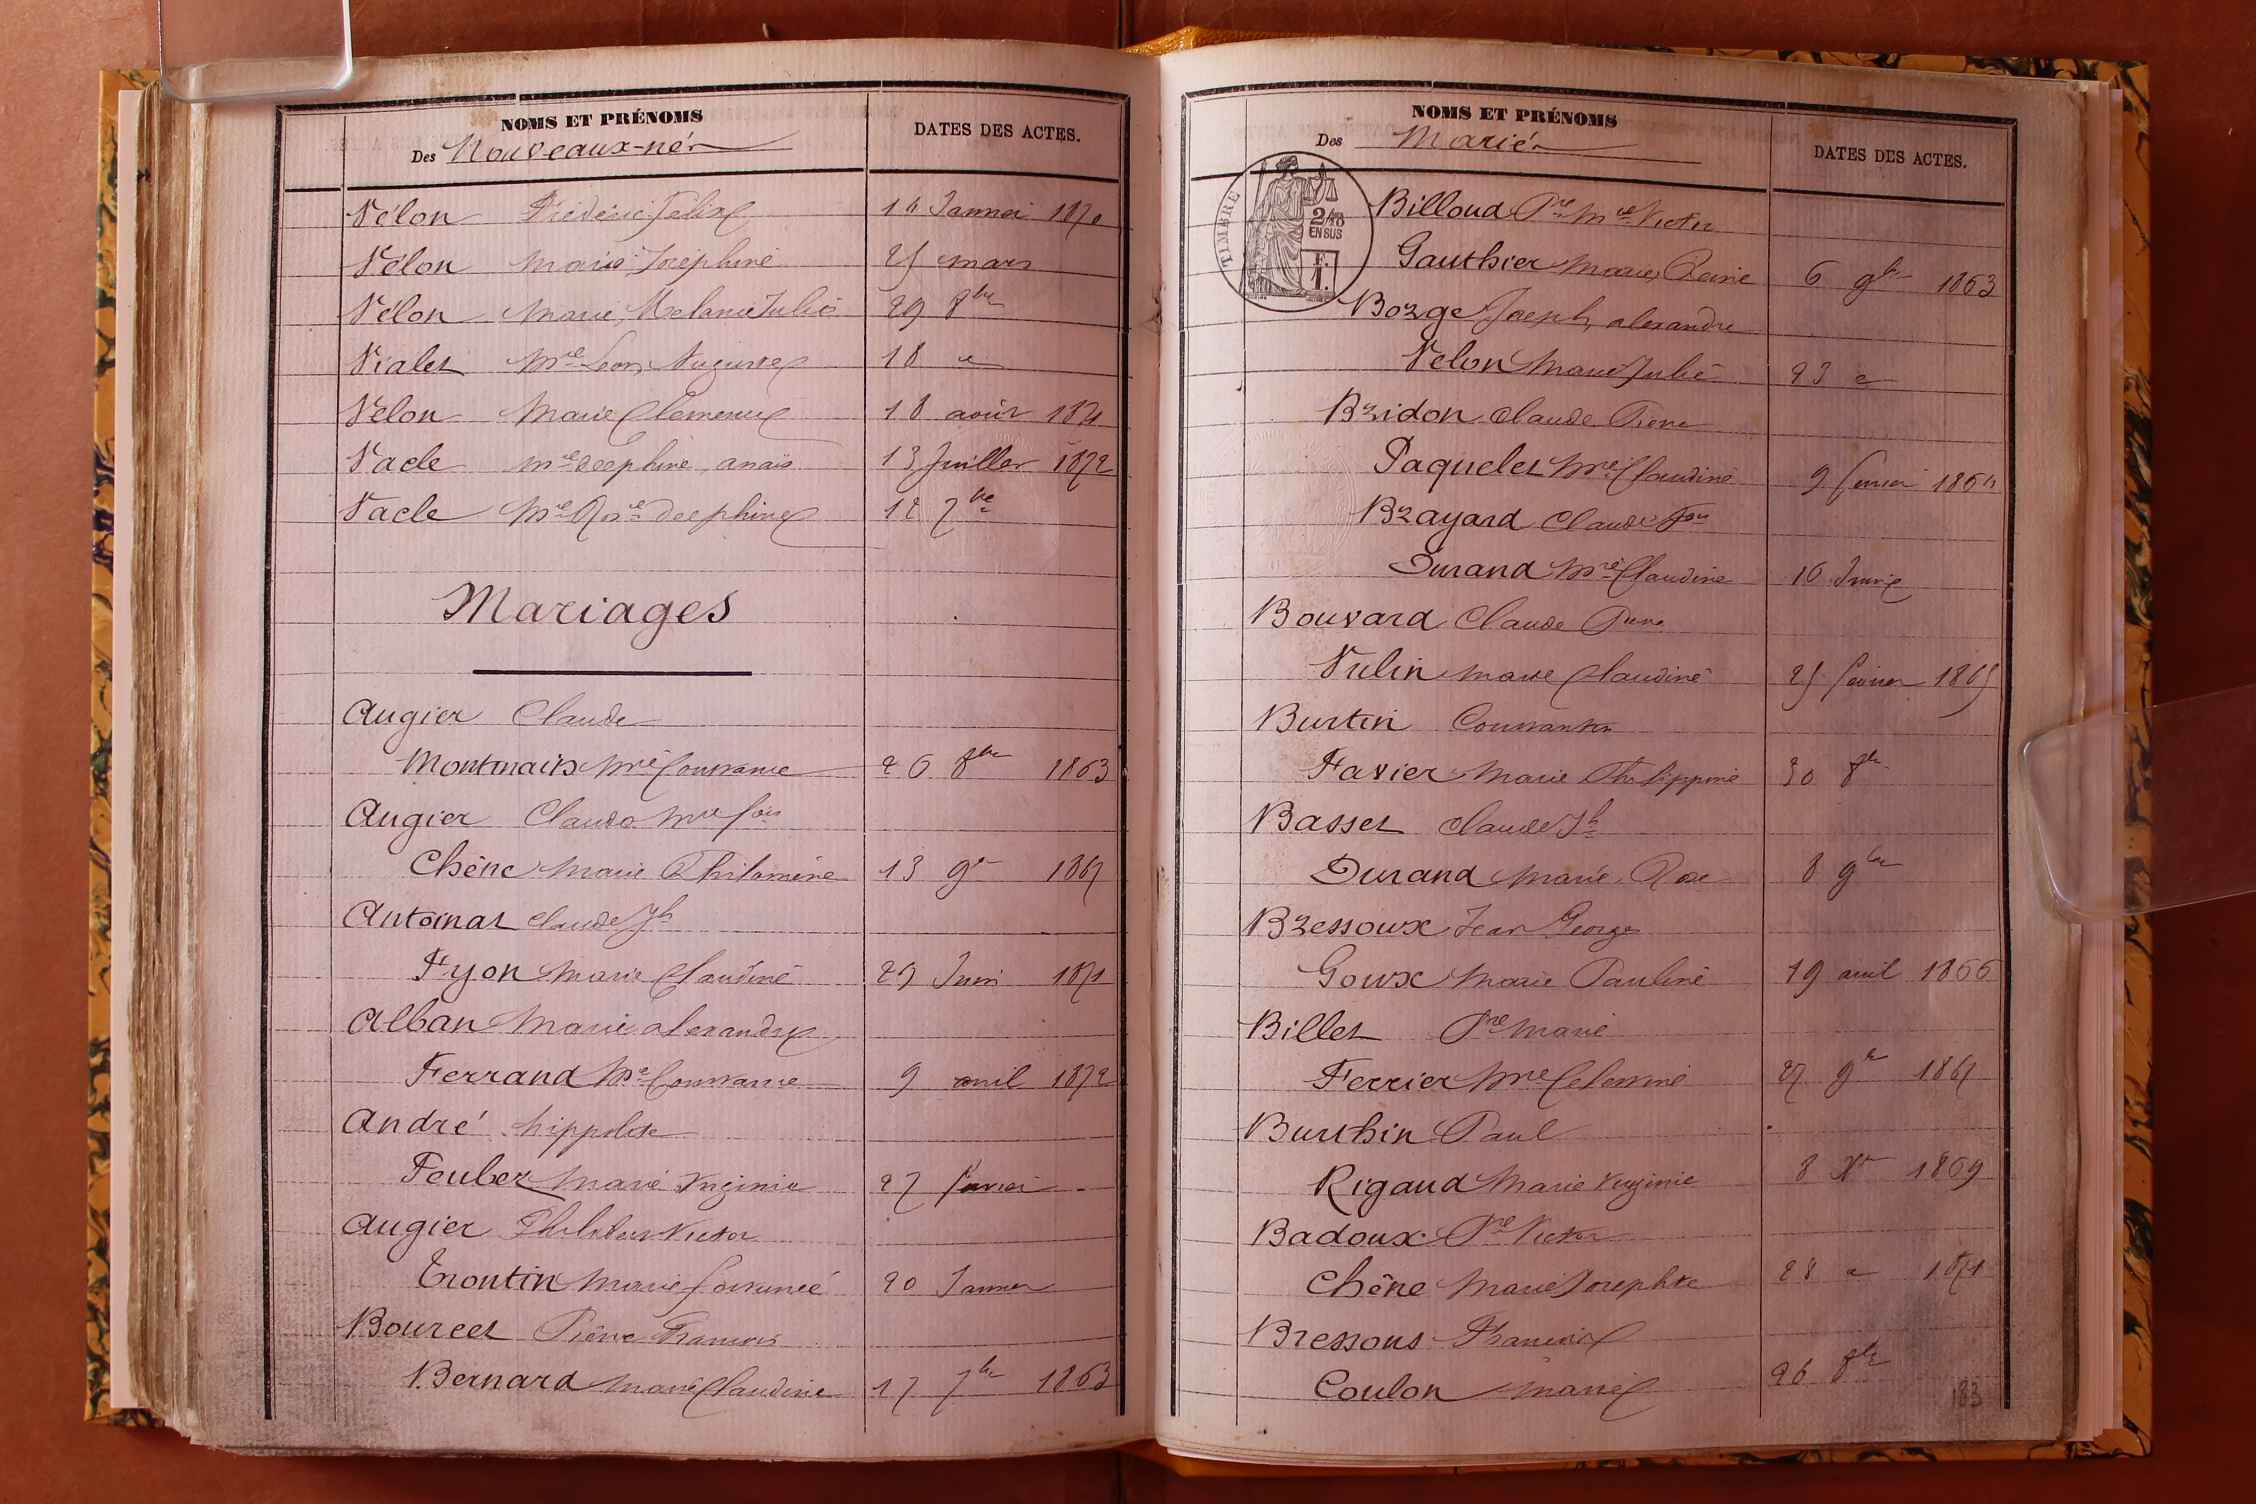 NOMS ET PRÉNOMS
Des Nouveaux-nés
DATES DES ACTES.
Vélon Frédéric Félix 14 Janvier 1870
Vélon Marie Joséphine 25 mars
Vélon Marie Mélanie Julie 29 8bre
Vialet Mie Léon Auguste 18 "
Vélon Marie Clémence 18 août 1871
Vacle Mie Delphine anaïs 13 Juillet 1872
Vacle Mie Rose Delphine 12 7bre
Mariages
Augier Claude
Montmain Mie Constance 26 8bre 1863
Augier Claude Mie fois
Chêne Marie Philomène 13 9bre 1867
Antoinat Claude Jh
Fyon Marie Claudine 29 Juin 1871
Alban Marie alexandre
Ferrand Mie Constance 9 avril 1872
André hippolite
Feuber Marie Virginie 27 février
Augier Philibert Victor
Trontin Marie fortunée 20 Janvier
Bourcet Pierre François
Bernard Marie Claudine 17 7bre 1863
NOMS ET PRÉNOMS
Des Mariés
DATES DES ACTES.
TIMBRE
2/10
EN SUS
F.
1.
Billoud Pre Mie Victor
Gauthier Marie Reine 6 9bre 1863
Borge Joseph alexandre
Velon Marie Julie 23 "
Bridon Claude Pierre
Paquelet Mie Claudine 9 février 1864
Brayard Claude fois
Durand Mie Claudine 16 Juin
Bouvard Claude Pierre
Vulin Marie Claudine 25 février 1865
Burtin Constantin
Favier Marie Philippine 30 8bre
Basset Claude Jh
Durand Marie Rose 8 9bre
Bressoux Jean George
Goux Marie Pauline 19 avril 1866
Billet Pre Marie
Ferrier Mie Célestine 27 9bre 1867
Burthin Paul
Rigaud Marie Virginie 8 Xbre 1869
Badoux Pre Victor
Chêne Marie Josephte 28 " 1871
Bressous François
Coulon Marie 26 8bre
183